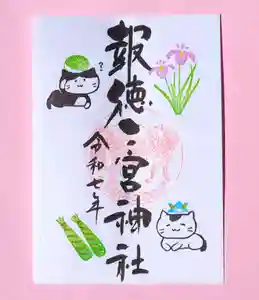 報徳二宮神社
令和七年
?